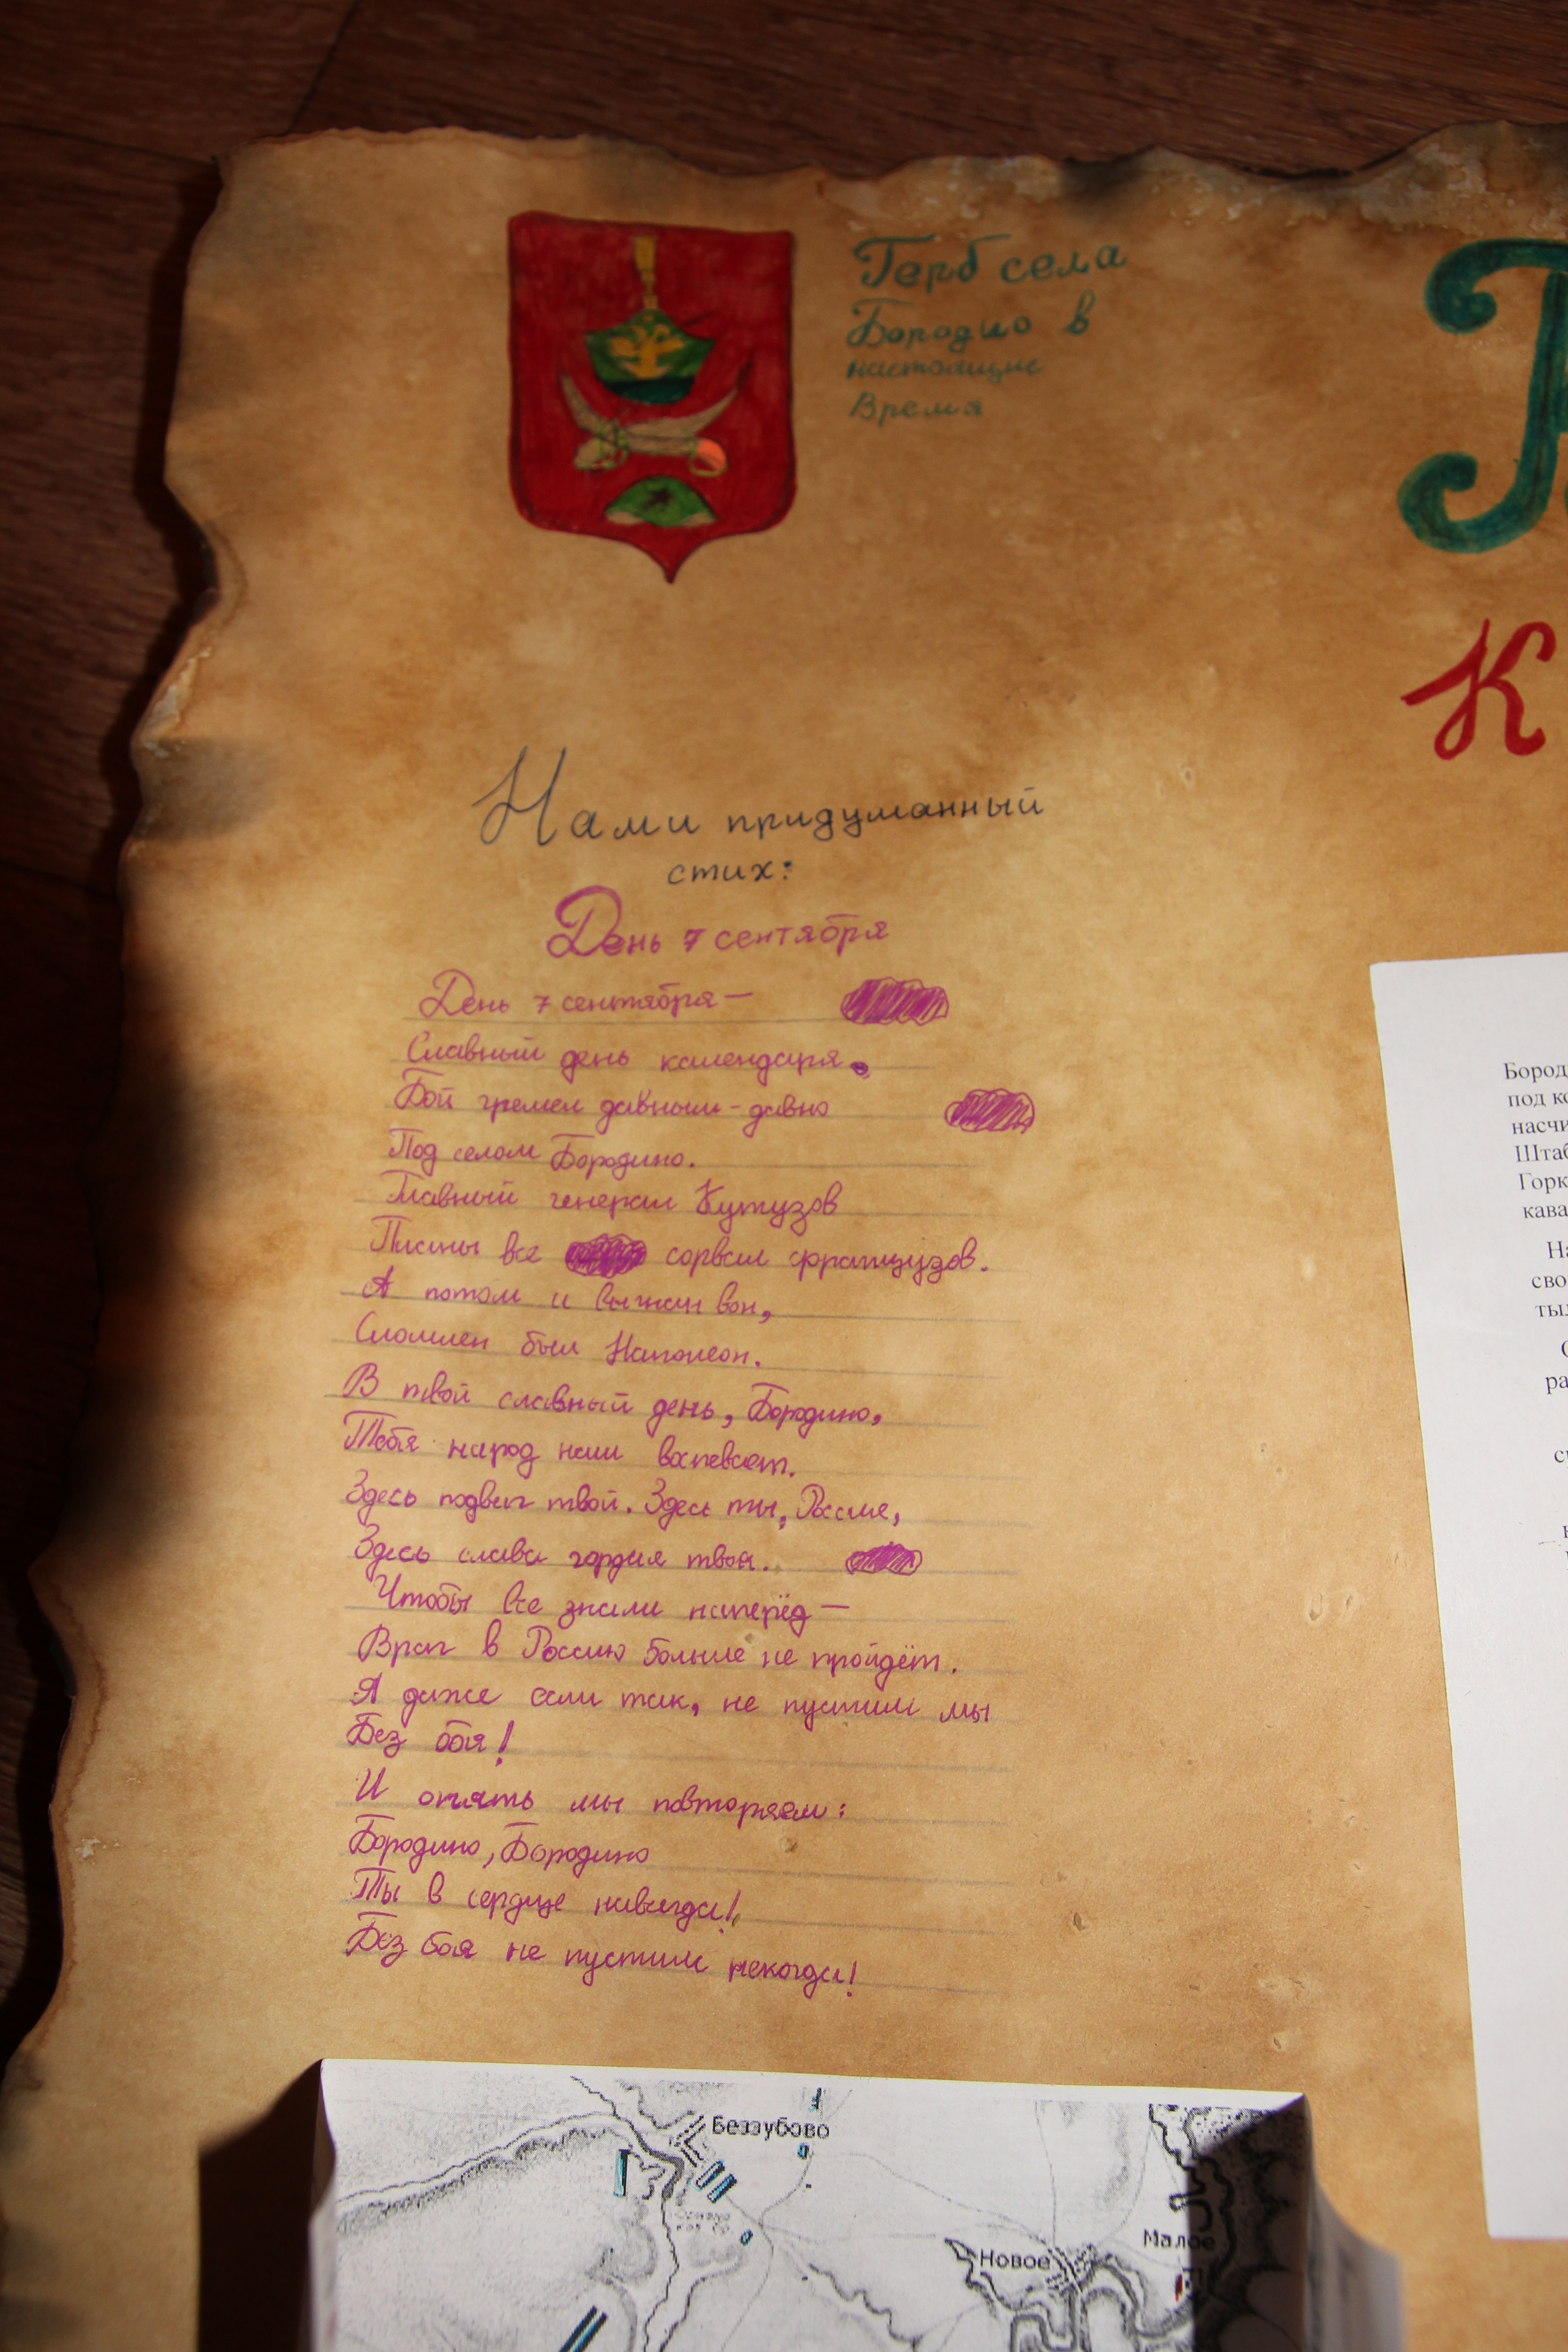 Герб села
Бородио в
настоящие
Время
К
Нами придуманный
стих:
День 7 сентября
День 7 сентября —
Славный день календаря.
Бой гремел давным-давно
Под селом Бородино.
Главный генерал Кутузов
Планы все сорвал французов.
А потом и выгнал вон,
Сломлен был Наполеон.
В твой славный день, Бородино,
Тебя народ наш воспевает.
Здесь подвиг твой. Здесь ты, Россия,
Здесь слава гордая твоя.
Чтобы все знали наперёд —
Враг в Россию больше не пройдёт.
А даже если так, не пустим мы
Без боя!
И опять мы повторяем:
Бородино, Бородино
Ты в сердце навсегда!
Без боя не пустим некогда!
Бород
под ко
насчи
Штаб
Горк
кава
На
сво
ты
ра
Беззубово
Новое
Малое